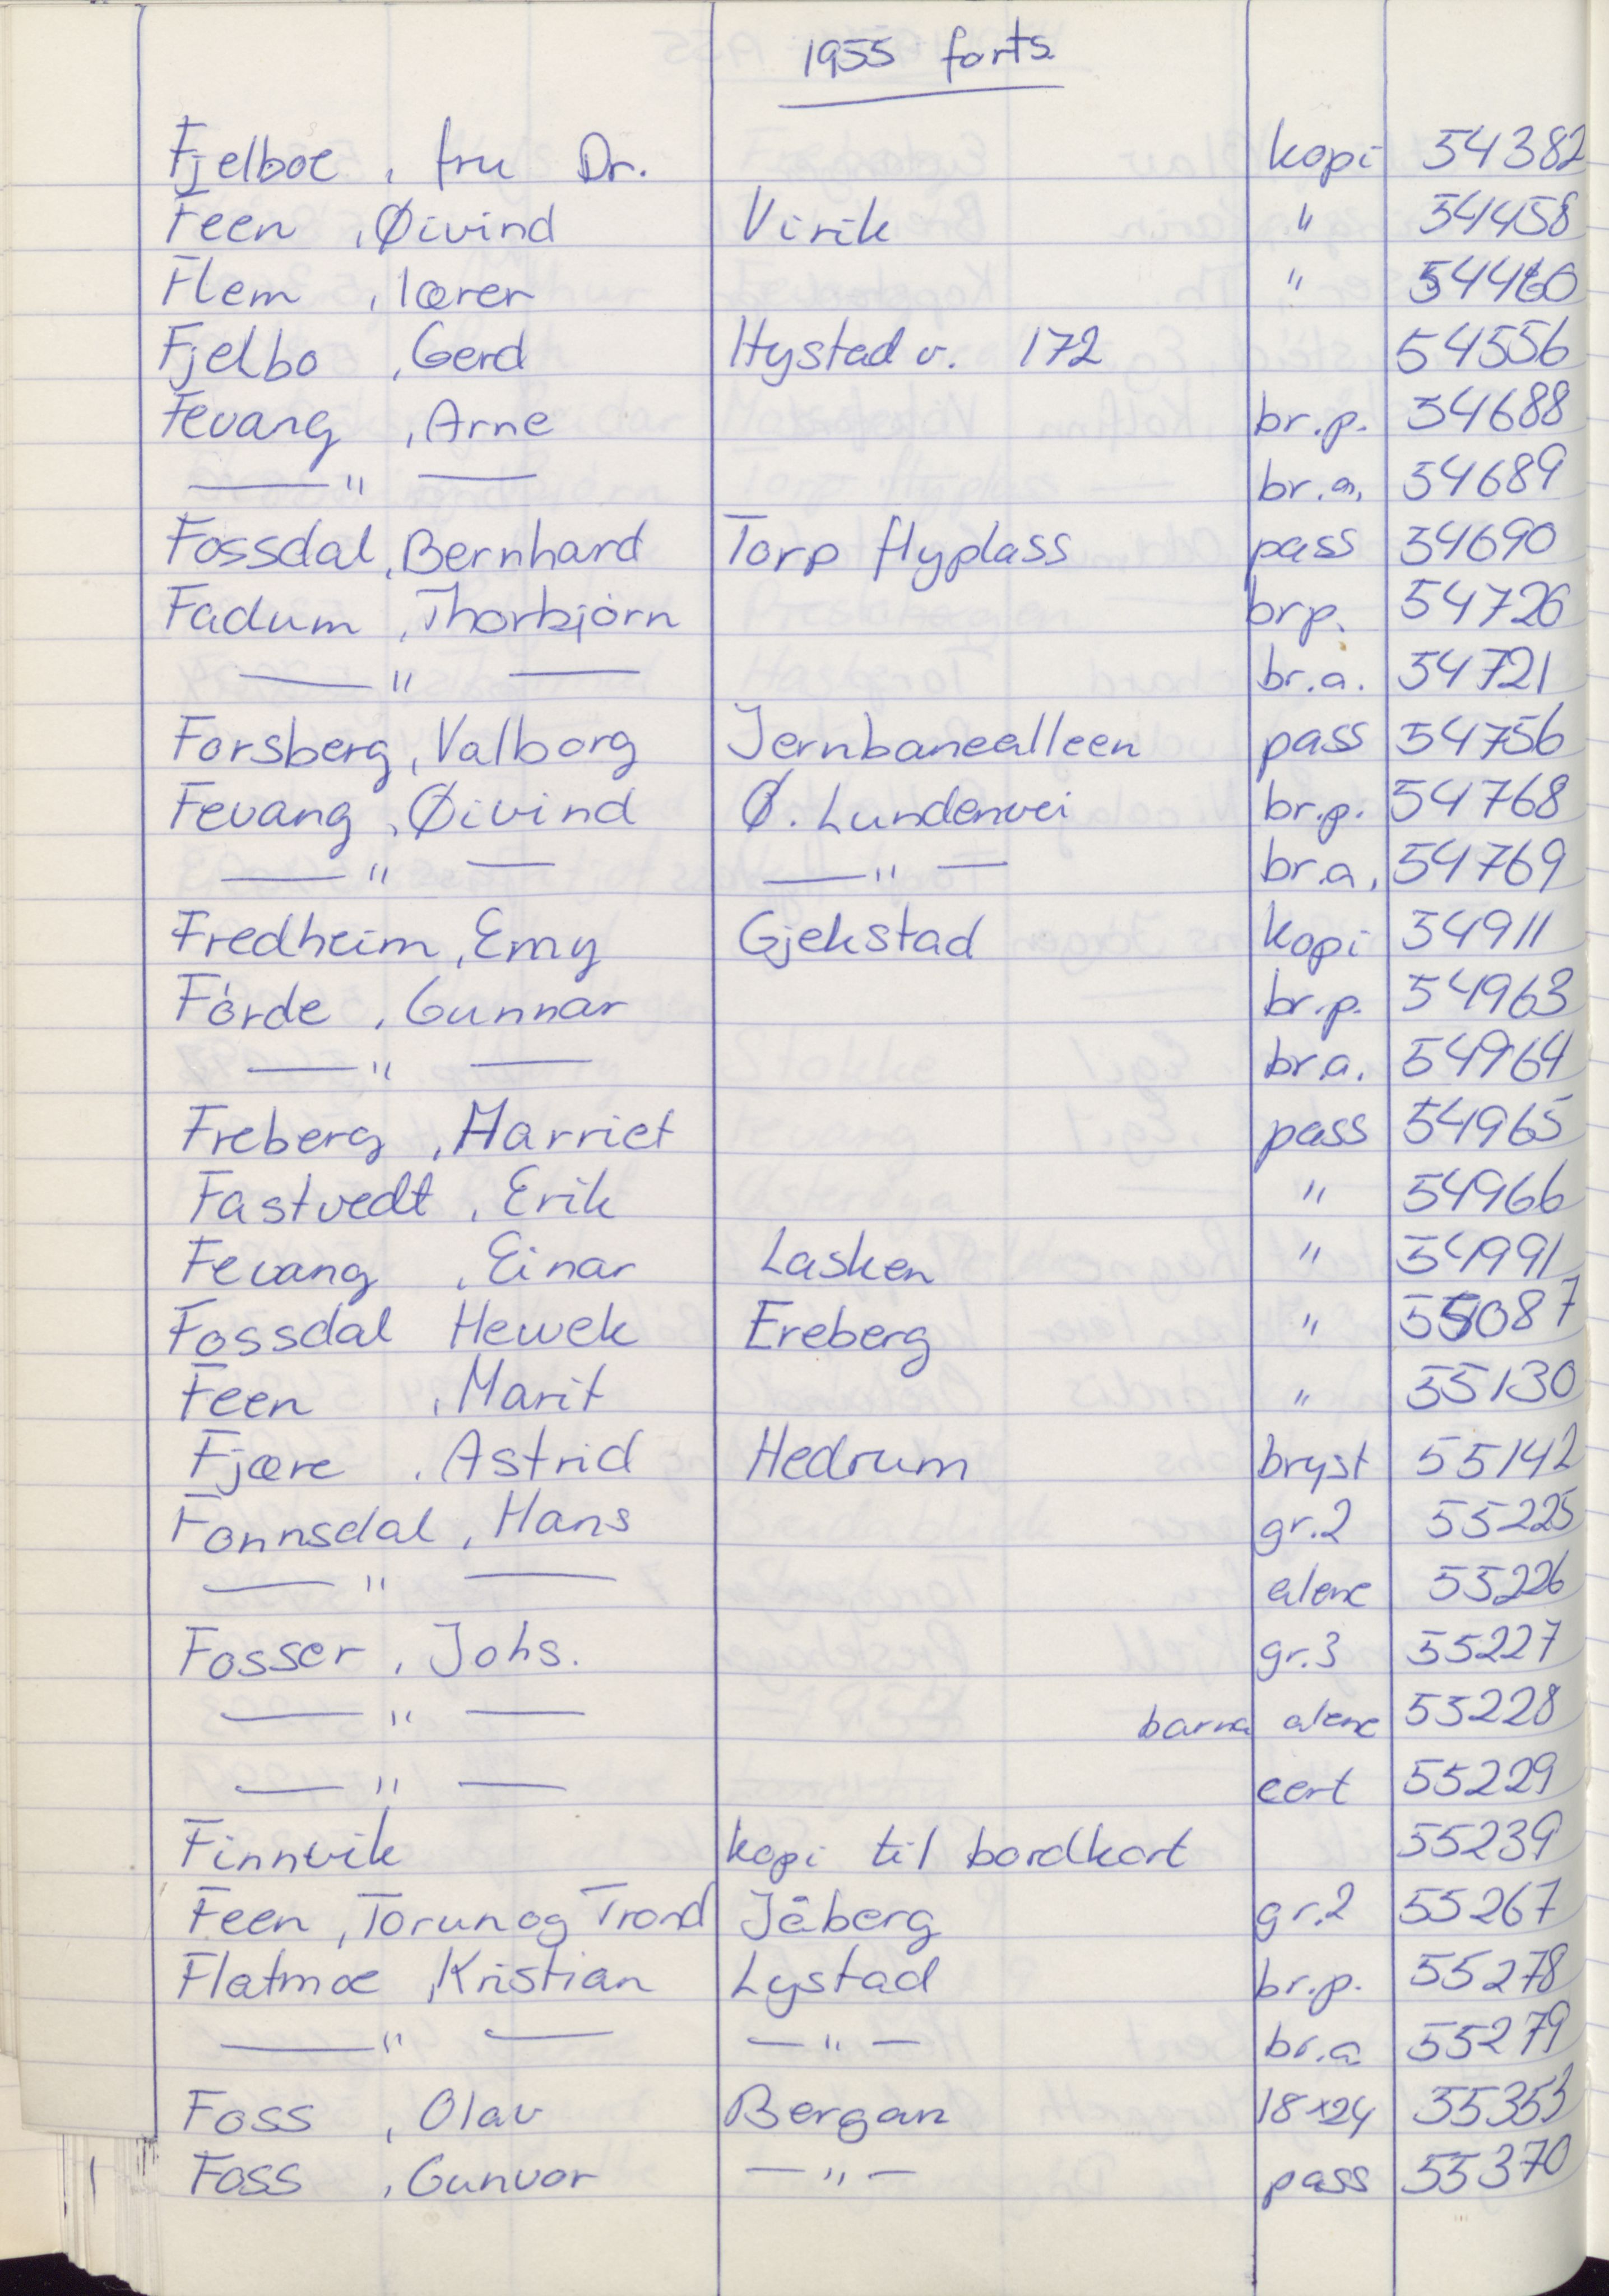 1955 forts.
Fjelboe, fru Dr. kopi 54382
Feen, Øivind Virik " 54458
Flem, lærer " 54460
Fjelbo, Gerd Hystad v. 172 54556
Fevang, Arne br.p. 54688
—"— br.a. 54689
Fossdal, Bernhard Torp flyplass pass 54690
Fadum, Thorbjörn brp. 54720
—"— br.a. 54721
Forsberg, Valborg Jernbanealleen pass 54756
Fevang, Øivind Ø. Lundenvei br.p. 54768
—"— —"— br.a. 54769
Fredheim, Emy Gjekstad kopi 54911
Förde, Gunnar br.p. 54963
—"— br.a. 54964
Freberg, Harriet pass 54965
Fastvedt, Erik " 54966
Fevang, Einar Lasken " 54991
Fossdal Hewek Ereberg " 55087
Feen, Marit " 55130
Fjære, Astrid Hedrum bryst 55142
Fonnsdal, Hans gr.2 55225
—"— alene 55226
Fosser, Johs. gr.3 55227
—"— barna alene 55228
—"— eert 55229
Finnvik kopi til bordkort 55239
Feen, Torun og Trond Jåberg gr.2 55267
Flatmoe, Kristian Lystad br.p. 55278
—"— —"— br.a 55279
Foss, Olav Bergan 18x24 55353
Foss, Gunvor —"— pass 55370